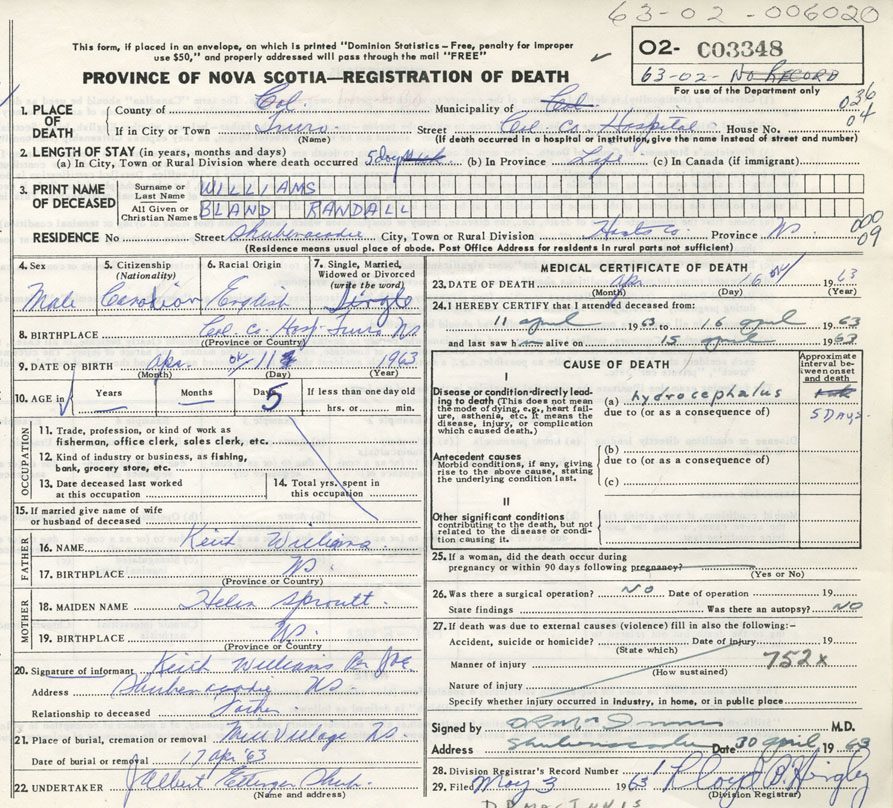 63-02-006020
This form, if placed in an envelope, on which is printed "Dominion Statistics – Free, penalty for improper
use $50," and properly addressed will pass through the mail "FREE"
02- C03348
63-02- No RECORD
For use of the Department only
PROVINCE OF NOVA SCOTIA—REGISTRATION OF DEATH
036
04
1. PLACE OF DEATH
County of Col. Municipality of Col
If in City or Town Truro Street Col. Co. Hospital House No.
(Name) (If death occurred in a hospital or institution, give the name instead of street and number)
2. LENGTH OF STAY (in years, months and days)
(a) In City, Town or Rural Division where death occurred 5 days (b) In Province Life (c) In Canada (if immigrant)
3. PRINT NAME OF DECEASED
Surname or Last Name WILLIAMS
All Given or Christian Names BLAND RANDALL
RESIDENCE No Street Shubenacadie City, Town or Rural Division Hants Co. Province NS
000
09
(Residence means usual place of abode. Post Office Address for residents in rural parts not sufficient)
4. Sex Male
5. Citizenship (Nationality) Canadian
6. Racial Origin English
7. Single, Married, Widowed or Divorced (write the word) Single
8. BIRTHPLACE Col. Co. Hosp. Truro NS
(Province or Country)
9. DATE OF BIRTH Apr. 11 1963
(Month) (Day) (Year)
10. AGE in Years Months Days 5 If less than one day old
hrs. or min.
OCCUPATION
11. Trade, profession, or kind of work as
fisherman, office clerk, sales clerk, etc.
12. Kind of industry or business, as fishing,
bank, grocery store, etc.
13. Date deceased last worked
at this occupation
14. Total yrs. spent in
this occupation
15. If married give name of wife
or husband of deceased
FATHER
16. NAME Keith Williams
17. BIRTHPLACE NS.
(Province or Country)
MOTHER
18. MAIDEN NAME Helen Sproutt.
19. BIRTHPLACE NS.
(Province or Country)
20. Signature of informant Keith Williams Per
Address Shubenacadie NS.
Relationship to deceased Father
21. Place of burial, cremation or removal Mill Village NS
Date of burial or removal 17 Apr '63
22. UNDERTAKER Albert Ettinger Shub.
(Name and address)
MEDICAL CERTIFICATE OF DEATH
23. DATE OF DEATH Apr 16 04/ 1963
(Month) (Day) (Year)
24. I HEREBY CERTIFY that I attended deceased from:
11 April 1963 to 16 April 1963
and last saw h alive on 15 April 1963
CAUSE OF DEATH
Approximate interval between onset and death
I
Disease or condition directly lead-
ing to death (This does not mean
the mode of dying, e.g., heart fail-
ure, asthenia, etc. It means the
disease, injury, or complication
which caused death.)
(a) hydrocephalus
due to (or as a consequence of)
5 DAYS.
Antecedent causes
Morbid conditions, if any, giving
rise to the above cause, stating
the underlying condition last.
(b)
due to (or as a consequence of)
(c)
II
Other significant conditions
contributing to the death, but not
related to the disease or condi-
tion causing it.
25. If a woman, did the death occur during
pregnancy or within 90 days following pregnancy?
(Yes or No)
26. Was there a surgical operation? NO Date of operation 19
State findings Was there an autopsy? NO
27. If death was due to external causes (violence) fill in also the following:-
Accident, suicide or homicide? Date of injury 19
(State which)
Manner of injury 752x
(How sustained)
Nature of injury
Specify whether injury occurred in industry, in home, or in public place
Signed by D R MacInnis M.D.
Address Shubenacadie Date 30 April 1963
28. Division Registrar's Record Number 1
29. Filed May 3 1963 Lloyd B. Hingley
(Division Registrar)
DR MACINNIS